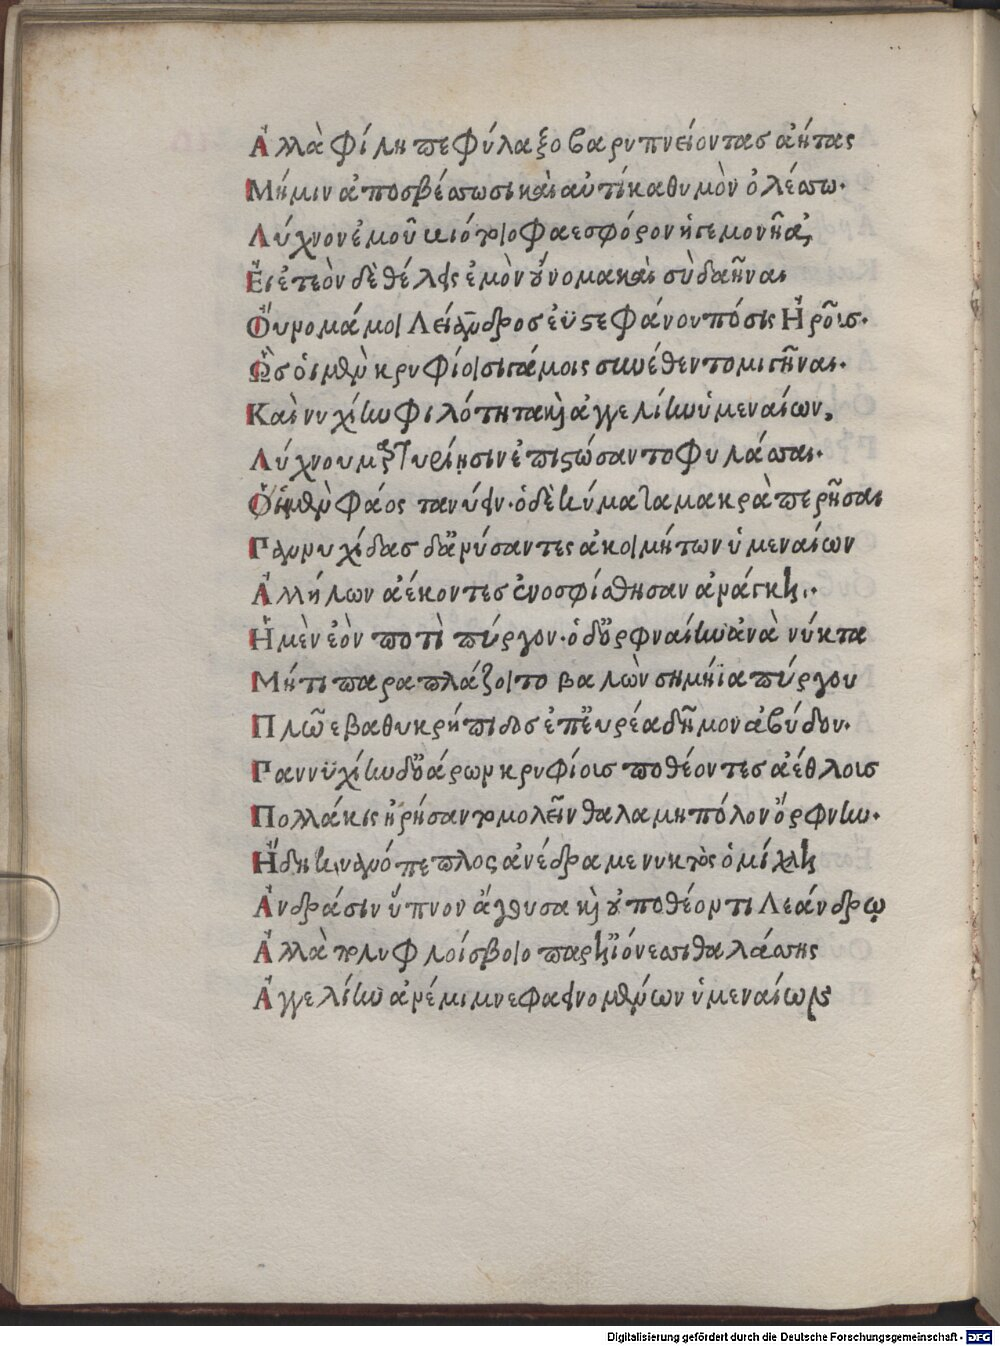 Ἀλλὰ φίλη πεφύλαξο βαρυπνείοντας ἀήτας
Μή μιν ἀποσβέσσωσι καὶ αὐτίκα θυμὸν ὀλέσσω.
Λύχνον ἐμοῦ βιότοιο φαεσφόρον ἡγεμονῆα,
Εἰ ἐτεὸν δὲ θέλεις ἐμὸν οὔνομα καὶ σὺ δαῆναι
Οὔνομά μοι Λείανδρος ἐϋστεφάνου πόσις Ἡροῖς.
Ὣς οἱ μὲν κρυφίοισι γάμοις συνέθεντο μιγῆναι.
Καὶ νυχίην φιλότητα καὶ ἀγγελίην ὑμεναίων,
Λύχνου μαρτυρίῃσιν ἐπιστώσαντο φυλάσσαι.
Οἱ μὲν φάος τανύειν. ὁ δὲ κύματα μακρὰ περῆσαι
Παννυχίδας δ' ἀνύσαντες ἀκοιμήτων ὑμεναίων
Ἀλλήλων ἀέκοντες ἐνοσφίσθησαν ἀνάγκῃ.
Ἡ μὲν ἑὸν ποτὶ πύργον. ὁ δ' ὀρφναίην ἀνὰ νύκτα
Μή τι παραπλάζοιτο βαλὼν σημήϊα πύργου
Πλῶε βαθυκρήπιδος ἐπ' εὐρέα δῆμον ἀβύδου.
Παννϋχίην δ' ὀάρων κρυφίοις ποθέοντες ἀέθλοις
Πολλάκις ἠρήσαντο μολεῖν θαλαμηπόλον ὄρφνην.
Ἤδη κυανόπεπλος ἀνέδραμε νυκτὸς ὁμίχλη
Ἀνδράσιν ὕπνον ἄγουσα καὶ οὐ ποθέοντι Λεάνδρῳ
Ἀλλὰ πολυφλοίσβοιο παρ' ἠϊόνεσσι θαλάσσης
Ἀγγελίην ἀνέμιμνε φαεινομένων ὑμεναίων